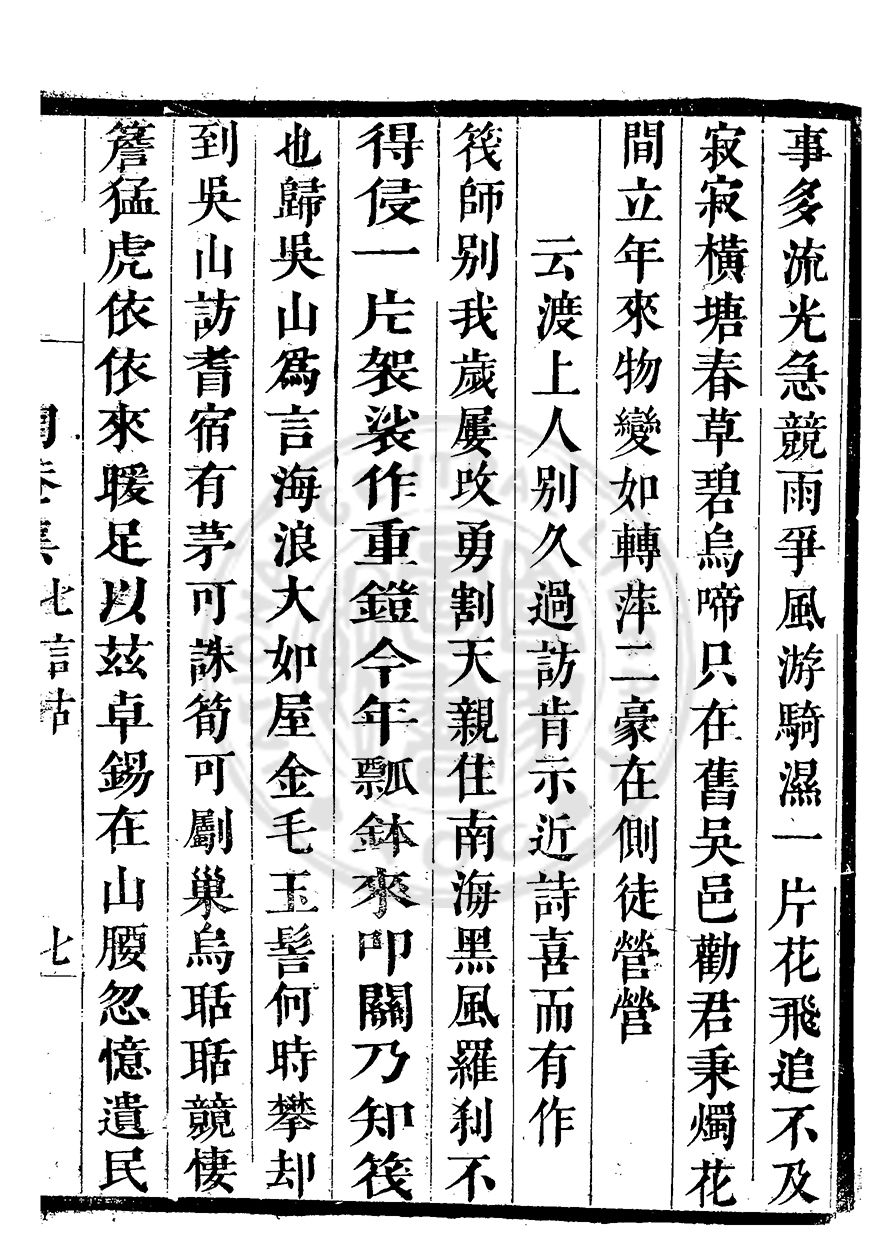 事多流光急競雨爭風游騎濕一片花飛追不及
寂寂橫塘春草碧烏啼只在舊吳邑勸君秉燭花
間立年來物變如轉萍二豪在側徒營營
云渡上人別久過訪肯示近詩喜而有作
筏師別我歲屢改勇割天親住南海黑風羅刹不
得侵一片袈裟作重鎧今年瓢鉢來叩關乃知筏
也歸吳山為言海浪大如屋金毛玉髻何時攀却
到吳山訪耆宿有茅可誅筍可劚巢烏聒聒競棲
簷猛虎依依來暖足以茲卓錫在山腰忽憶遺民
七言古
七